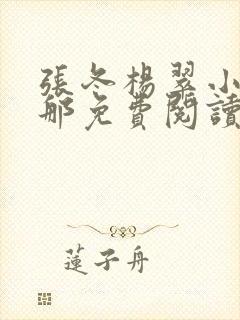 張冬楊翠小
郍免費閱讀
蓮子舟